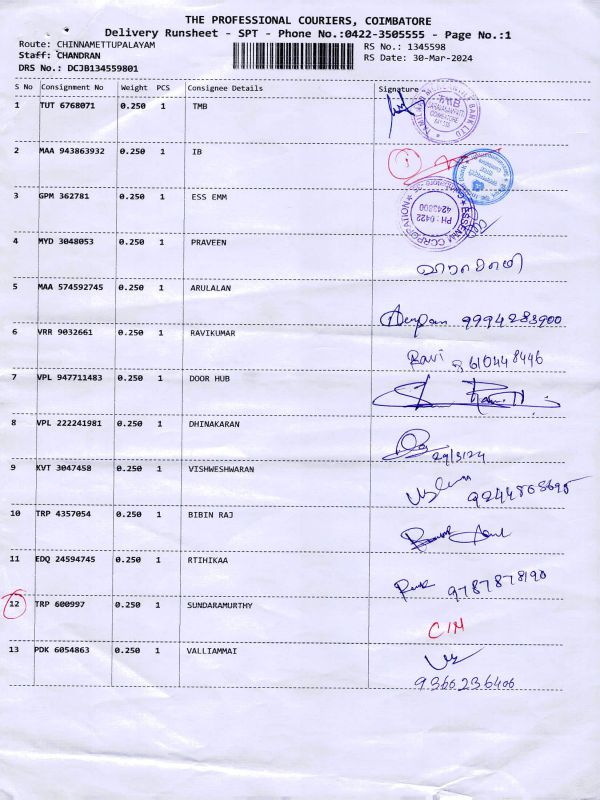 THE PROFESSIONAL COURIERS, COIMBATORE
Delivery Runsheet - SPT - Phone No.:0422-3505555 - Page No.:1
Route: CHINNAMETTUPALAYAM RS No.: 1345598
Staff: CHANDRAN RS Date: 30-Mar-2024
DRS No.: DCJB134559801
S No Consignment No Weight PCS Consignee Details Signature
1 TUT 6768071 0.250 1 TMB
2 MAA 943863932 0.250 1 IB
3 GPM 362781 0.250 1 ESS EMM
PH : 0422
4243800
ESSEMM CORPORATION
4 MYD 3048053 0.250 1 PRAVEEN
5 MAA 574592745 0.250 1 ARULALAN
9994283900
6 VRR 9032661 0.250 1 RAVIKUMAR
Ravi 8610448446
7 VPL 947711483 0.250 1 DOOR HUB
8 VPL 222241981 0.250 1 DHINAKARAN
29/3/24
9 KVT 3047458 0.250 1 VISHWESHWARAN
10 TRP 4357054 0.250 1 BIBIN RAJ
11 EDQ 24594745 0.250 1 RTIHIKAA
9787878190
12 TRP 600997 0.250 1 SUNDARAMURTHY
CIN
13 PDK 6054863 0.250 1 VALLIAMMAI
9366236406